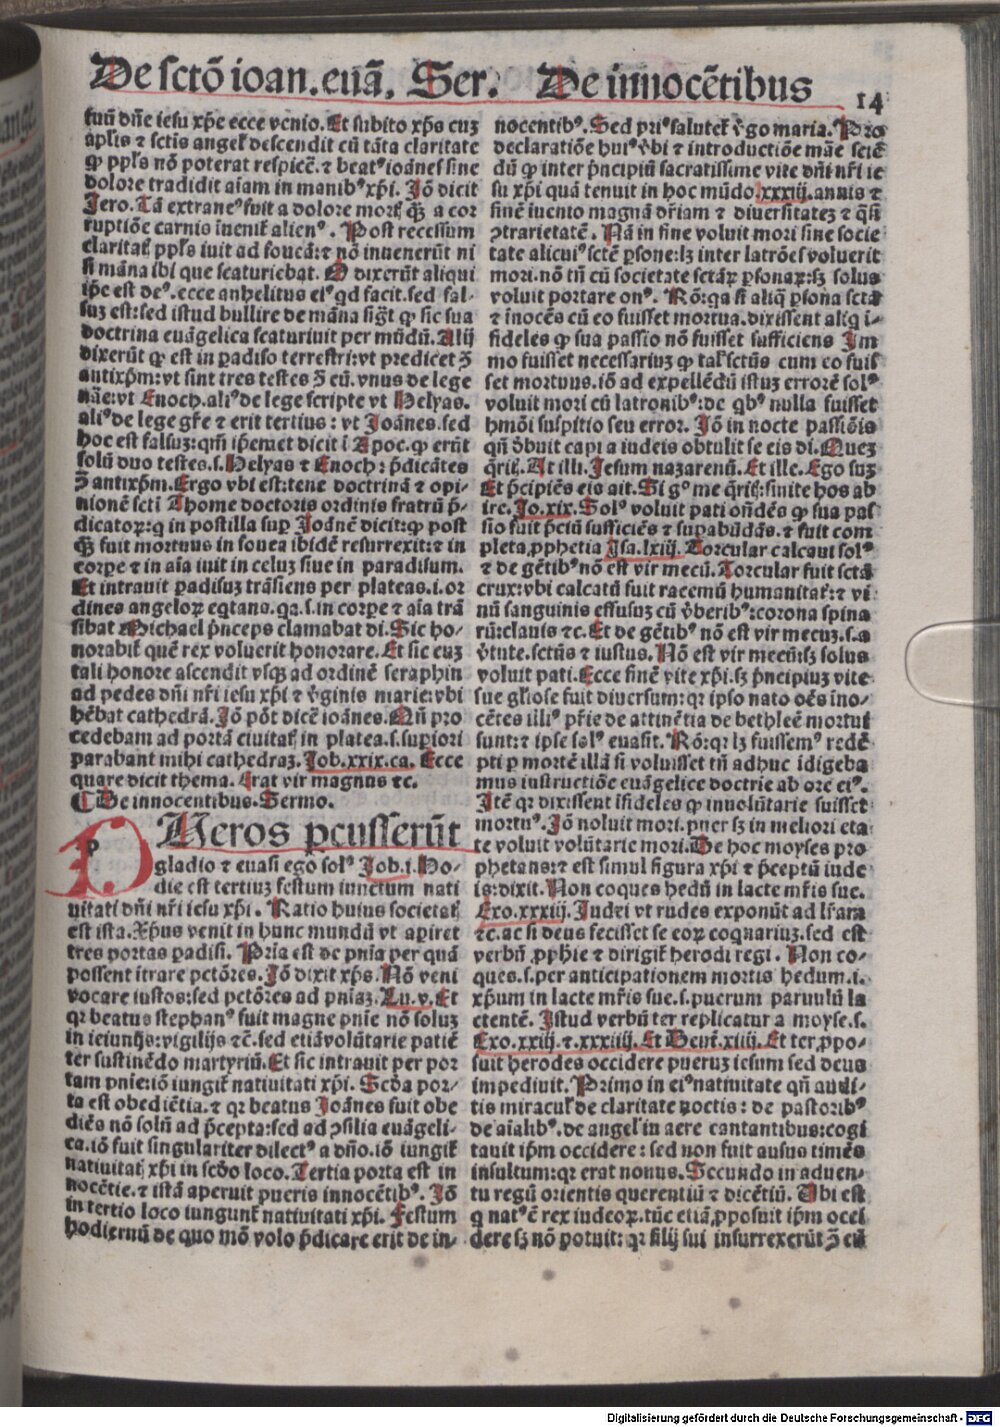 De sctō ioan. euā. Ser. De innocētibus
14
tuū dn̄e iesu xp̄e ecce venio. Et subito xp̄s cuz
apl̓is ⁊ sctis angel̓ descendit cū tāta claritate
ꝙ ppl̓s nō poterat respicē. ⁊ beatꝰ ioānes sine
dolore tradidit aīam in manibꝰ xp̄i. Jō dicit
Jero. Tā extraneꝰ fuit a dolore mort̓ q̄ꝫ a cor
ruptiōe carnis īuenit̓ alienꝰ. Post recessum
claritat̓ ppl̓s iuit ad foueā: ⁊ nō inuenerūt ni
si māna ibi que scaturiebat. O dixerūt aliqui
ip̄e est deꝰ. ecce anhelitus eiꝰ qd facit. sed fal-
suz est: sed istud bullire de māna siḡt ꝙ sic sua
doctrina euāgelica scaturiuit per mūdū. Alij
dixerūt ꝙ est in padiso terrestri: vt predicet ↄ̄
antixp̄m: vt sint tres testes ↄ̄ eū. vnus de lege
nāe: vt Enoch. aliꝰ de lege scripte vt Helyas.
aliꝰ de lege gr̄e ⁊ erit tertius: vt Joānes. sed
hoc est falsuz: qm̄ ip̄emet dicit ī Apoc. ꝙ erūt
solū duo testes. s. Helyas ⁊ Enoch: p̄dicātes
ↄ̄ antixp̄m. Ergo vbi est: tene doctrinā ⁊ opi-
nionē scti Thome doctoris ordinis fratrū p̄-
dicatoꝝ: q in postilla sup Joānē dicit: ꝙ post
q̄ꝫ fuit mortuus in fouea ibidē resurrexit: ⁊ in
corpe ⁊ in aīa iuit in celuz siue in paradisum.
Et intrauit padisuz trāsiens per plateas. i. or
dines angeloꝝ eqtans. qa. s. in corpe ⁊ aīa trā
sibat Michael p̄nceps clamabat di. Sic ho-
norabit̓ quē rex voluerit honorare. Et sic cuz
tali honore ascendit vsqꝫ ad ordinē seraphin
ad pedes dn̄i nr̄i iesu xp̄i ⁊ v̓ginis marie: vbi
hēbat cathedrā. Jō pōt dicē ioānes. Qn̄ pro
cedebam ad portā ciuitat̓ in platea. s. supiori
parabant mihi cathedraz. Job. xxix. ca. Ecce
quare dicit thema. Erat vir magnus ⁊c.
¶ De innocentibus. Sermo.
PUeros pcusserūt
gladio ⁊ euasi ego solꝰ Job. i. Ho-
die est tertiuz festum iunctum nati
uitati dn̄i nr̄i iesu xp̄i. Ratio huius societat̓
est ista. Xp̄us venit in hunc mundū vt apiret
tres portas padisi. Pria est de pn̄ia per quā
possent ītrare pctōres. Jō dixit xp̄s. Nō veni
vocare iustos: sed pctōres ad pn̄iaz. Lu. v. Et
qꝛ beatus stephanꝰ fuit magne pn̄ie nō soluz
in ieiunijs: vigilijs ⁊c̄. sed etiā volūtarie patiē
ter sustinēdo martyriū. Et sic intrauit per por
tam pn̄ie: iō iungit̓ natiuitati xp̄i. Scd̓a por-
ta est obediētia. ⁊ qꝛ beatus Joānes fuit obe
diēs nō solū ad p̄cepta: sed ad ꝯsilia euāgeli-
ca. iō fuit singulariter dilectꝰ a dn̄o. iō iungit̓
natiuitat̓ xp̄i in scd̓o loco. Tertia porta est in
nocētie. ⁊ istā aperuit pueris innocētibꝰ. Jō
in tertio loco iungunt̓ natiuitati xp̄i. Festum
hodiernū de quo mō volo p̄dicare erit de in-
nocentibꝰ. Sed priꝰ salutet̓ v̓go maria. Pro
declaratiōe huiꝰ v̓bi ⁊ introductiōe māe sciē
dū ꝙ inter p̄ncipiū sacratissime vite dn̄i nr̄i ie
su xp̄i quā tenuit in hoc mūdo xxxiij. annis ⁊
finē inuento magnā dr̄iam ⁊ diuersitatez ⁊ q̄si
ꝯtrarietatē. Nā in fine voluit mori sine socie
tate alicuiꝰ sctē psone: lꝫ inter latrōes voluerit
mori. nō tn̄ cū societate sctāꝝ psonaꝝ: sꝫ solus
voluit portare onꝰ. Rō: qa si aliq̄ psona sctā
⁊ inocēs cū eo fuisset mortua. dixissent aliq i-
fideles ꝙ sua passio nō fuisset sufficiens Jm
mo fuisset necessariuz ꝙ tal̓ sctūs cum eo fuis
set mortuus. iō ad expellēdū istuz errorē solꝰ
voluit mori cū latronibꝰ: de qbꝰ nulla fuisset
hmōi suspitio seu error. Jō in nocte passiōis
qn̄ d̓buit capi a iudeis obtulit se eis di. Quez
q̄rit̓. At illi. Jesum nazarenū. Et ille. Ego suz
Et p̄cipiēs eis ait. Si gͦ me q̄rit̓: sinite hos ab
ire. Jo. xix. Solꝰ voluit pati on̄dēs ꝙ sua pas
sio fuit p̄ciū sufficiēs ⁊ supabūdās. ⁊ fuit com
pleta ꝓphetia Jsa. lxiij. Torcular calcaui solꝰ
⁊ de gētibꝰ nō est vir mecū. Torcular fuit sctā
crux: vbi calcatū fuit racemū humanitat̓: ⁊ vi
nū sanguinis effusuz cū v̓beribꝰ: corona spina
rū: clauis ⁊c. Et de gētibꝰ nō est vir mecuz. s. a
v̓tute. sctūs ⁊ iustus. Nō est vir mecū: sꝫ solus
voluit pati. Ecce finē vite xp̄i. sꝫ p̄ncipiuz vite
sue gl̓iose fuit diuersum: qꝛ ipso nato oēs ino-
cētes illiꝰ pr̄ie de attinētia de bethleē mortui
sunt: ⁊ ipse solꝰ euasit. Rō: qꝛ lꝫ fuissemꝰ redē
pti p mortē illā si voluisset tn̄ adhuc idigeba
mus instructiōe euāgelice doctrie ab ore eiꝰ.
Jtē qꝛ dixissent ifideles ꝙ inuolūtarie fuisset
mortuꝰ. Jō noluit mori. puer sꝫ in meliori eta
te voluit volūtarie mori. De hoc moyses pro
phetans: ⁊ est simul figura xp̄i ⁊ p̄ceptū iude
is: dixit. Non coques hedū in lacte mr̄is sue.
Exo. xxxiij. Judei vt rudes exponūt ad lr̄am
⁊c. ac si deus fecisset se eoꝝ coquariuz. sed est
verbū ꝓphie ⁊ dirigit̓ herodi regi. Non co-
ques. s. per anticipationem mortis hedum. i.
xp̄um in lacte mr̄is sue. s. puerum paruulū la
ctentē. Jstud verbū ter replicatur a moyse. s.
Exo. xxiij. ⁊. xxxiiij. Et Deut̄. xiiij. Et ter ꝓpo-
suit herodes occidere pueruz iesum sed deus
impediuit. Primo in eiꝰ natiuitate qn̄ audi-
tis miracul̓ de claritate noctis: de pastoribꝰ
de aīalibꝰ. de angel̓ in aere cantantibus: cogi
tauit ip̄m occidere: sed non fuit ausus timēs
insultum: qꝛ erat nouus. Secundo in aduen-
tu regū orientis querentiū ⁊ dicētiū. Ubi est
q natꝰ ē rex iudeoꝝ. tūc etiā ꝓposuit ip̄m occi
dere sꝫ nō potuit: qꝛ filij sui insurrexerūt ↄ̄ eū
Digitalisierung gefördert durch die Deutsche Forschungsgemeinschaft - DFG